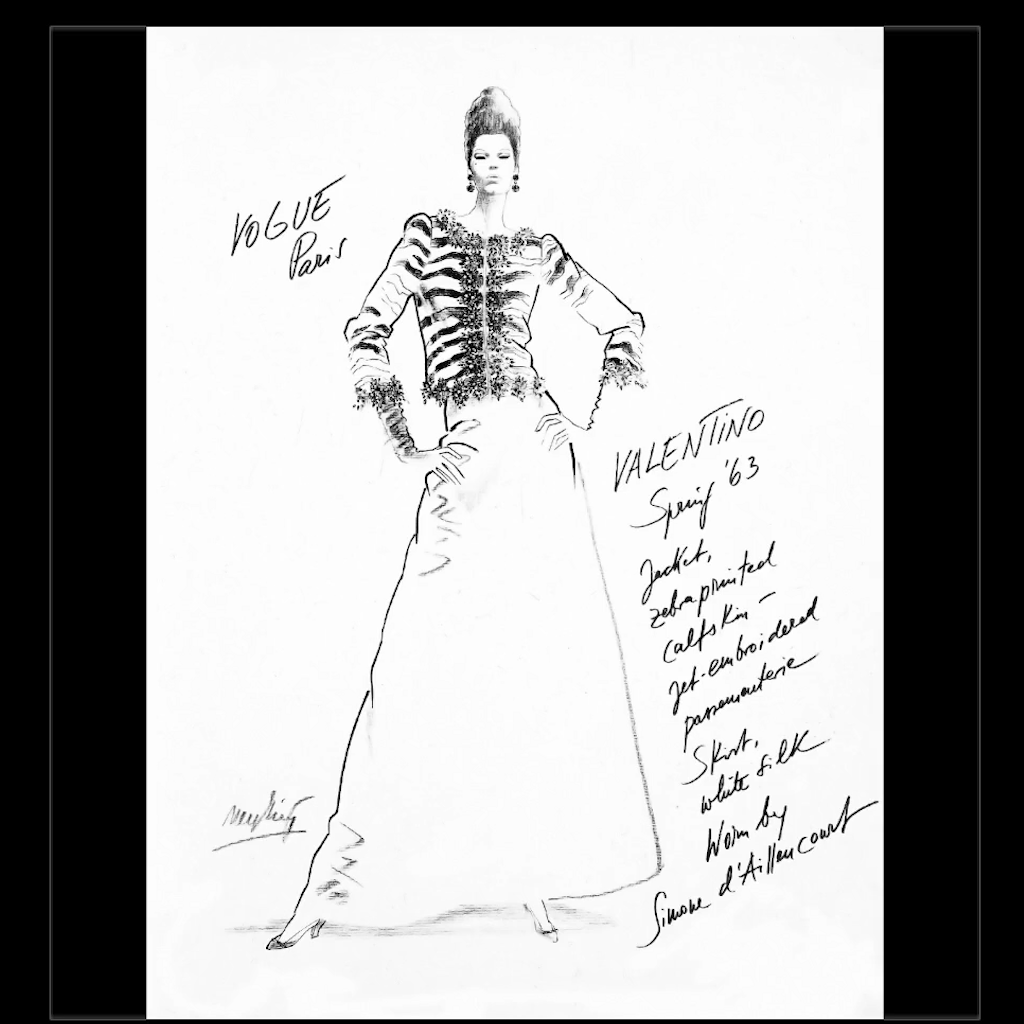 VOGUE
Paris
VALENTINO
Spring '63
Jacket,
zebraprinted
calfskin –
jet-embroidered
passementerie
Skirt,
white silk
Worn by
Simone d'Aillencourt